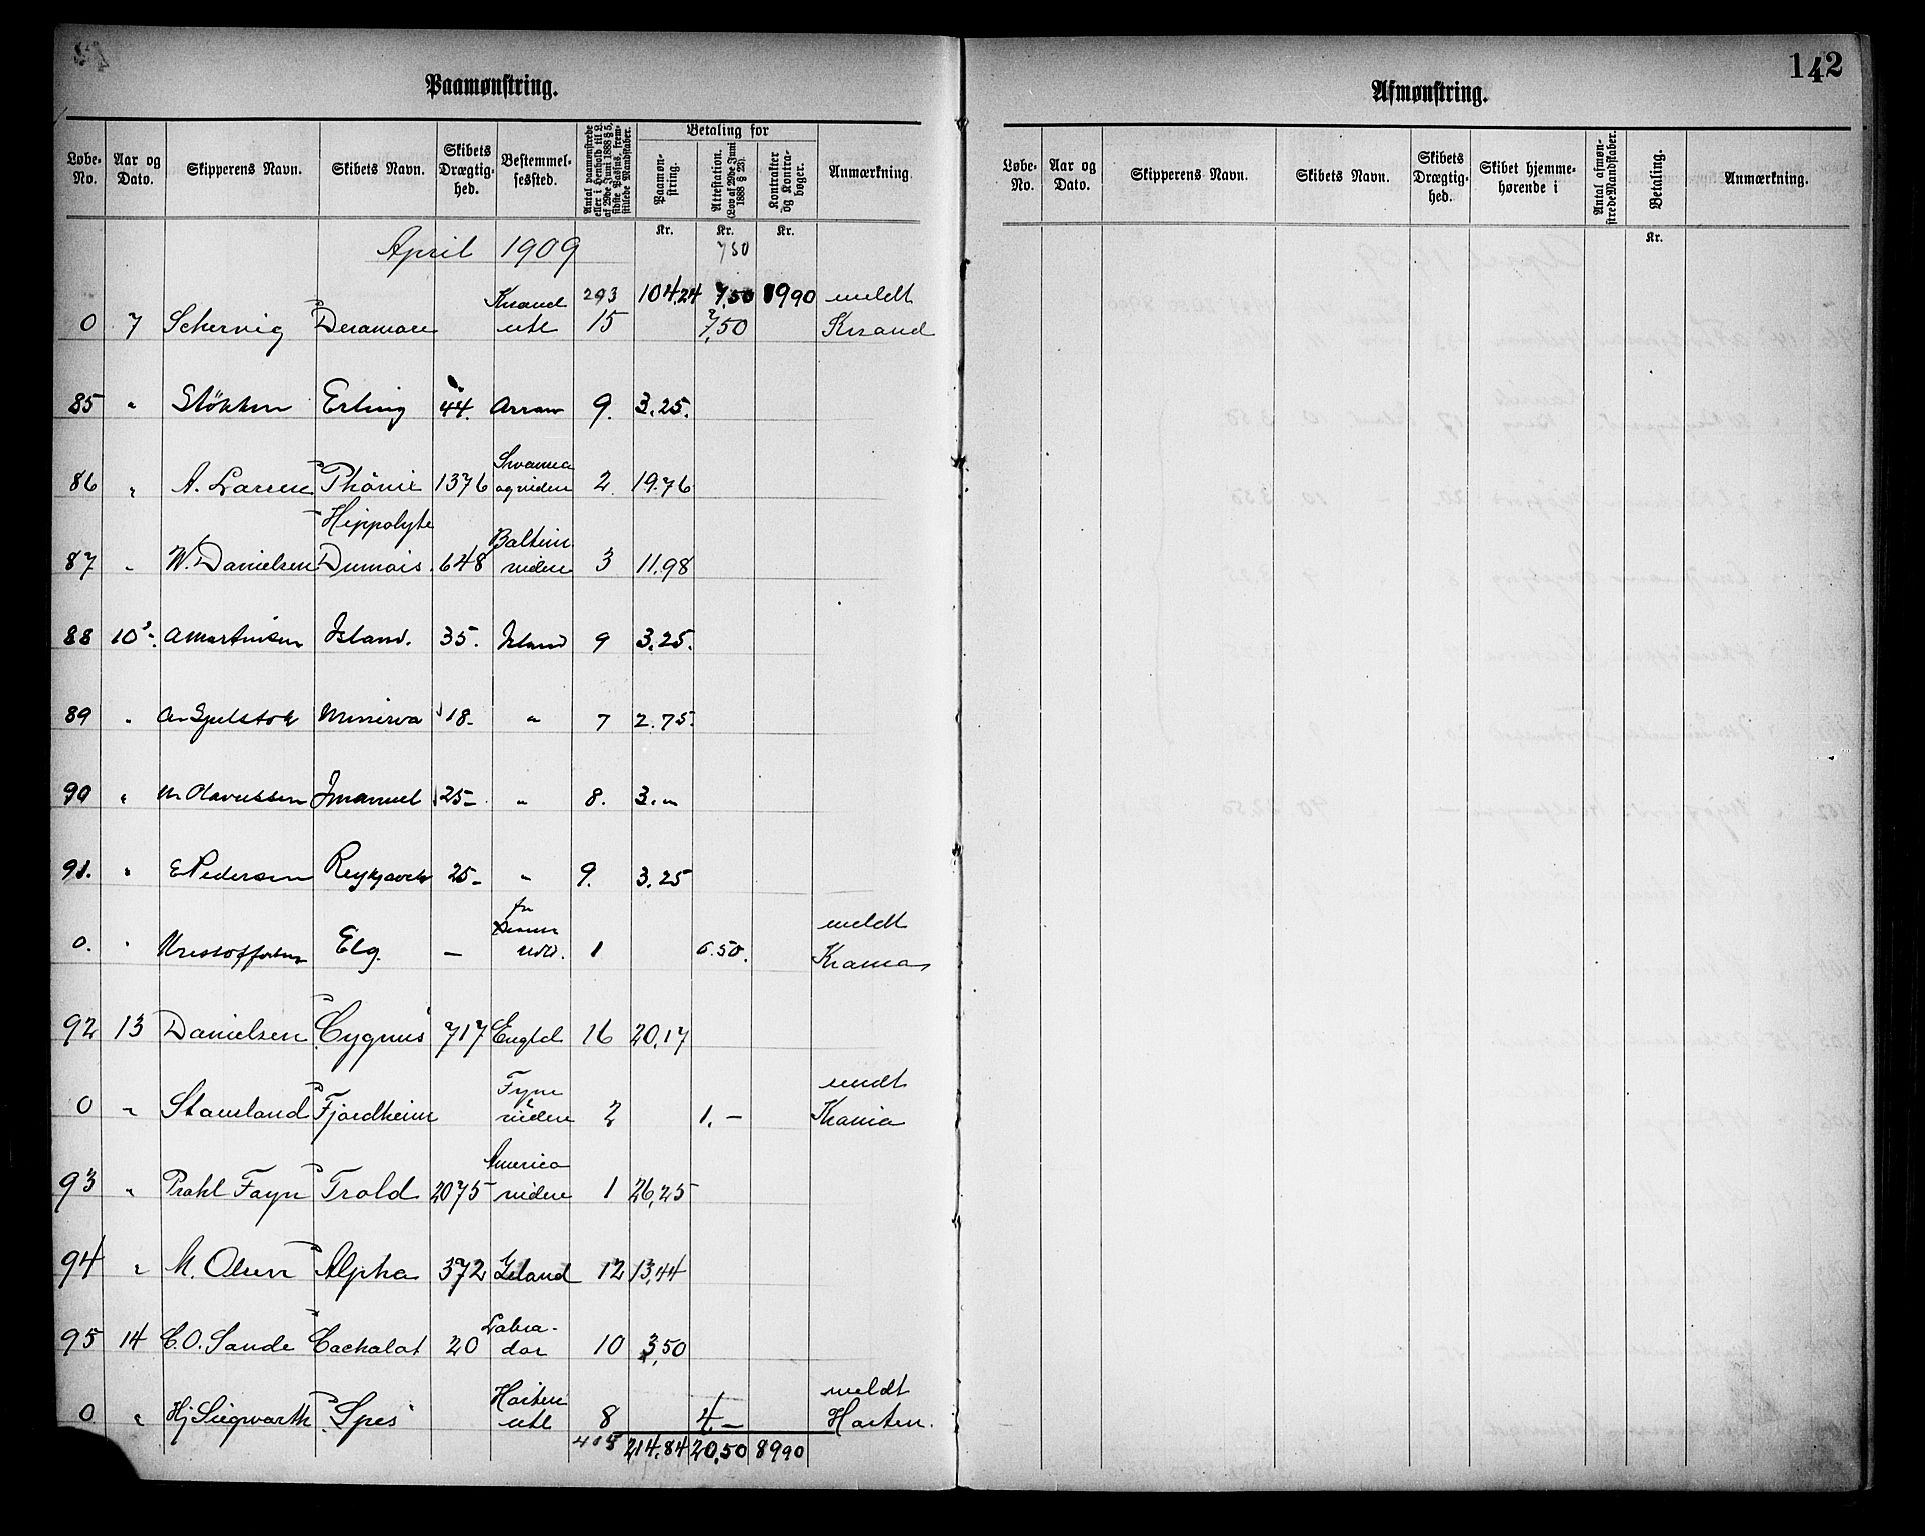 Paamønstring.
Løbe-No. Aar og Dato. Skipperens Navn. Skibets Navn. Skibets Drægtig-hed. Bestemmel-sessted. Antal paamønstrede eller i Henhold til L. af 29de Juni 1888 § 5, sidste Passus, frem-stillede Mandskaber. Betaling for Paamøn-string. Attestation. (Lov af 29de Juni 1888 § 23). Kontrakter og Kontra-bøger. Anmærkning.
Kr. Kr. Kr.
April 1909 7,50
Krsand 293 104,24 7,50 8990 meldt
0 7 Schervig "Deramore utl 15 7,50 Krsand
85 " Stökken Erling 44. 9. 3.25.
Svansea
86 " A. Larsen "Phönix 1376 og videre 2 19.76
"Hippolyte Baltim
87 " W. Danielsen Dumois. 648 videre 3 11.98
88 10 A Martinsen Island. 35. Island 9 3.25.
89 " Minerva 18- " 7 2.75.
90 " M Olavessen Imanuel 25- " 8. 3."
91. " E Pedersen Reykjavik 25- " 9. 3.25
fra meldt
0. " Kristoffersen Elg. — udl. 1 0.50. Krania
92 13 Danielsen "Cygnus" 717 Engld 16 20,17
Fyne meldt
0 " Stamland "Fjordheim videre 2 1.— Krania
America
93 " Prahl Fayn "Trold 2075 videre 1 26,25
94 " M. Olsen "Alpha 372 Island 12 13,44
Labra-
95 14 C.O. Sande "Cachalot 20 dor 10 3,50
Hasten meldt
0 " Hj Siegwarth "Spes" utl 8 4.— Hasten.
408 214.84 20,50 8990
142
Afmønstring.
Løbe-No. Aar og Dato. Skipperens Navn. Skibets Navn. Skibets Drægtig-hed. Skibet hjemme-hørende i Antal afmøn-strede Mandskaber. Betaling. Anmærkning.
Kr.